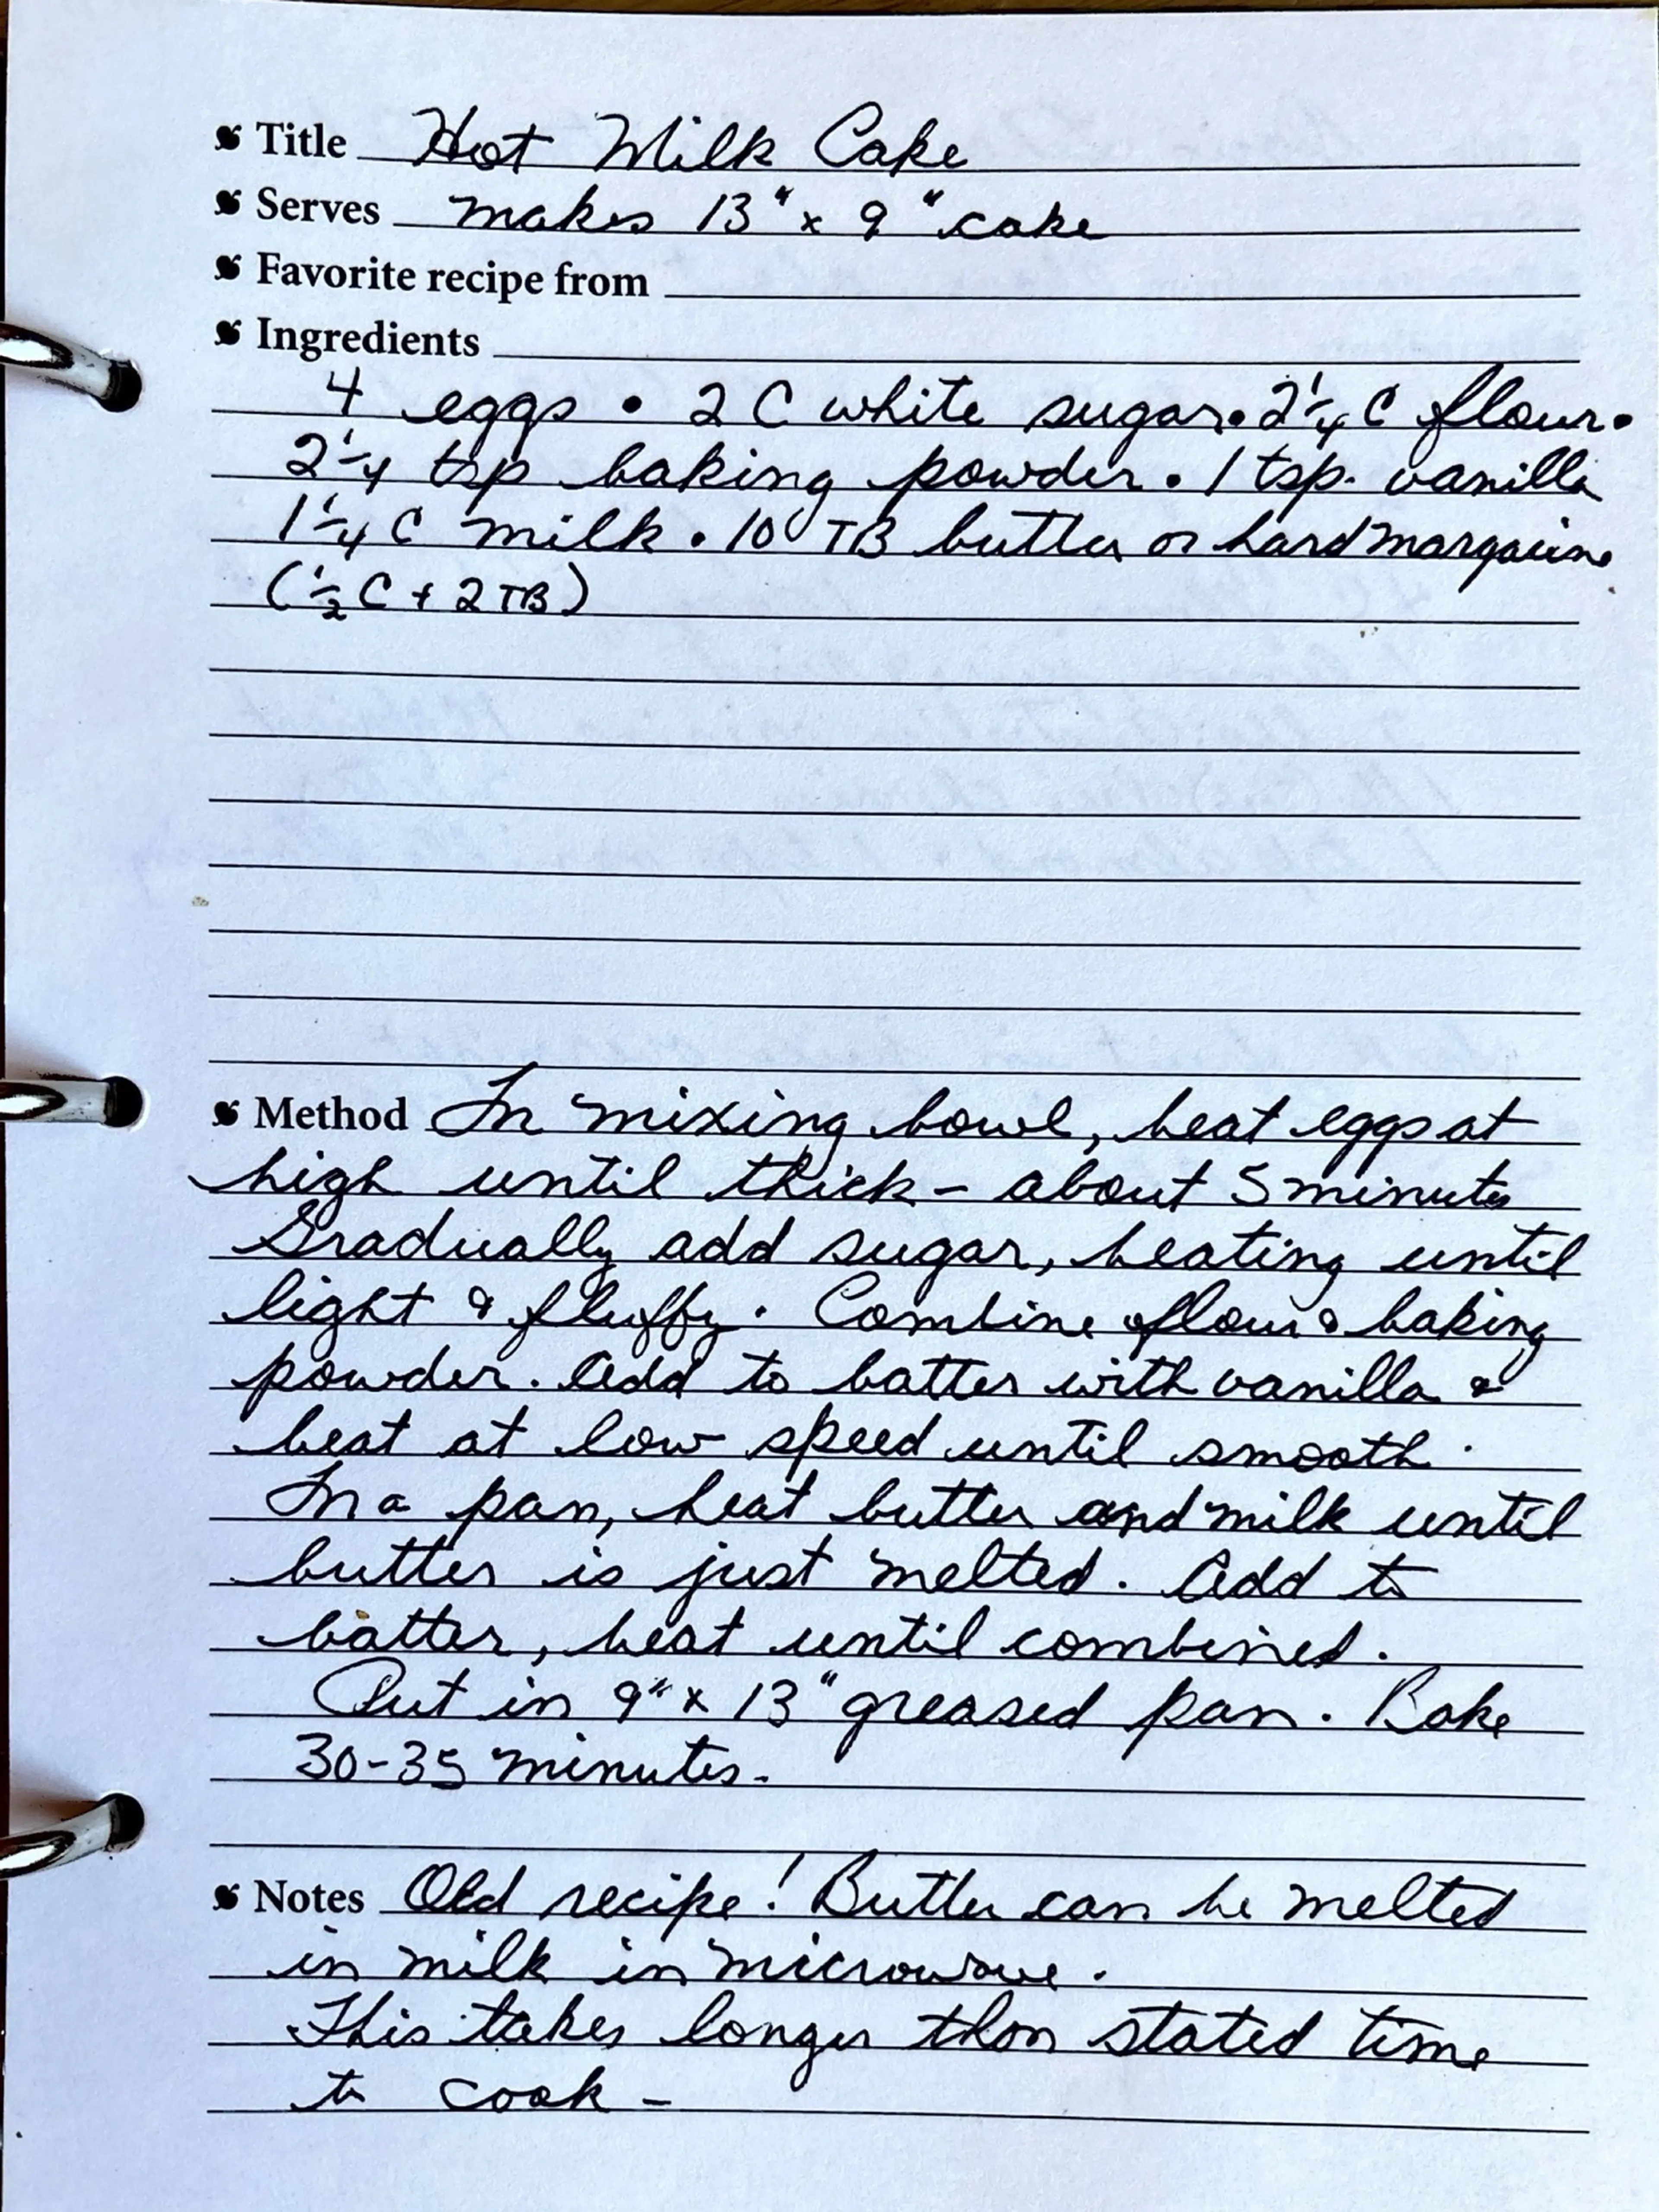 Title Hot Milk Cake
Serves makes 13" x 9" cake
Favorite recipe from
Ingredients
4 eggs • 2 C white sugar • 2 1/4 C flour •
2 1/4 tsp baking powder • 1 tsp. vanilla
1 1/4 C milk • 10 TB butter or hard margarine
(1/2 C + 2 TB)
Method In mixing bowl, beat eggs at
high until thick - about 5 minutes
Gradually add sugar, beating until
light & fluffy. Combine flour & baking
powder. Add to batter with vanilla &
beat at low speed until smooth.
In a pan, heat butter and milk until
butter is just melted. Add to
batter, beat until combined.
Put in 9" x 13" greased pan. Bake
30-35 minutes.
Notes Old recipe! Butter can be melted
in milk in microwave.
This takes longer than stated time
to cook -